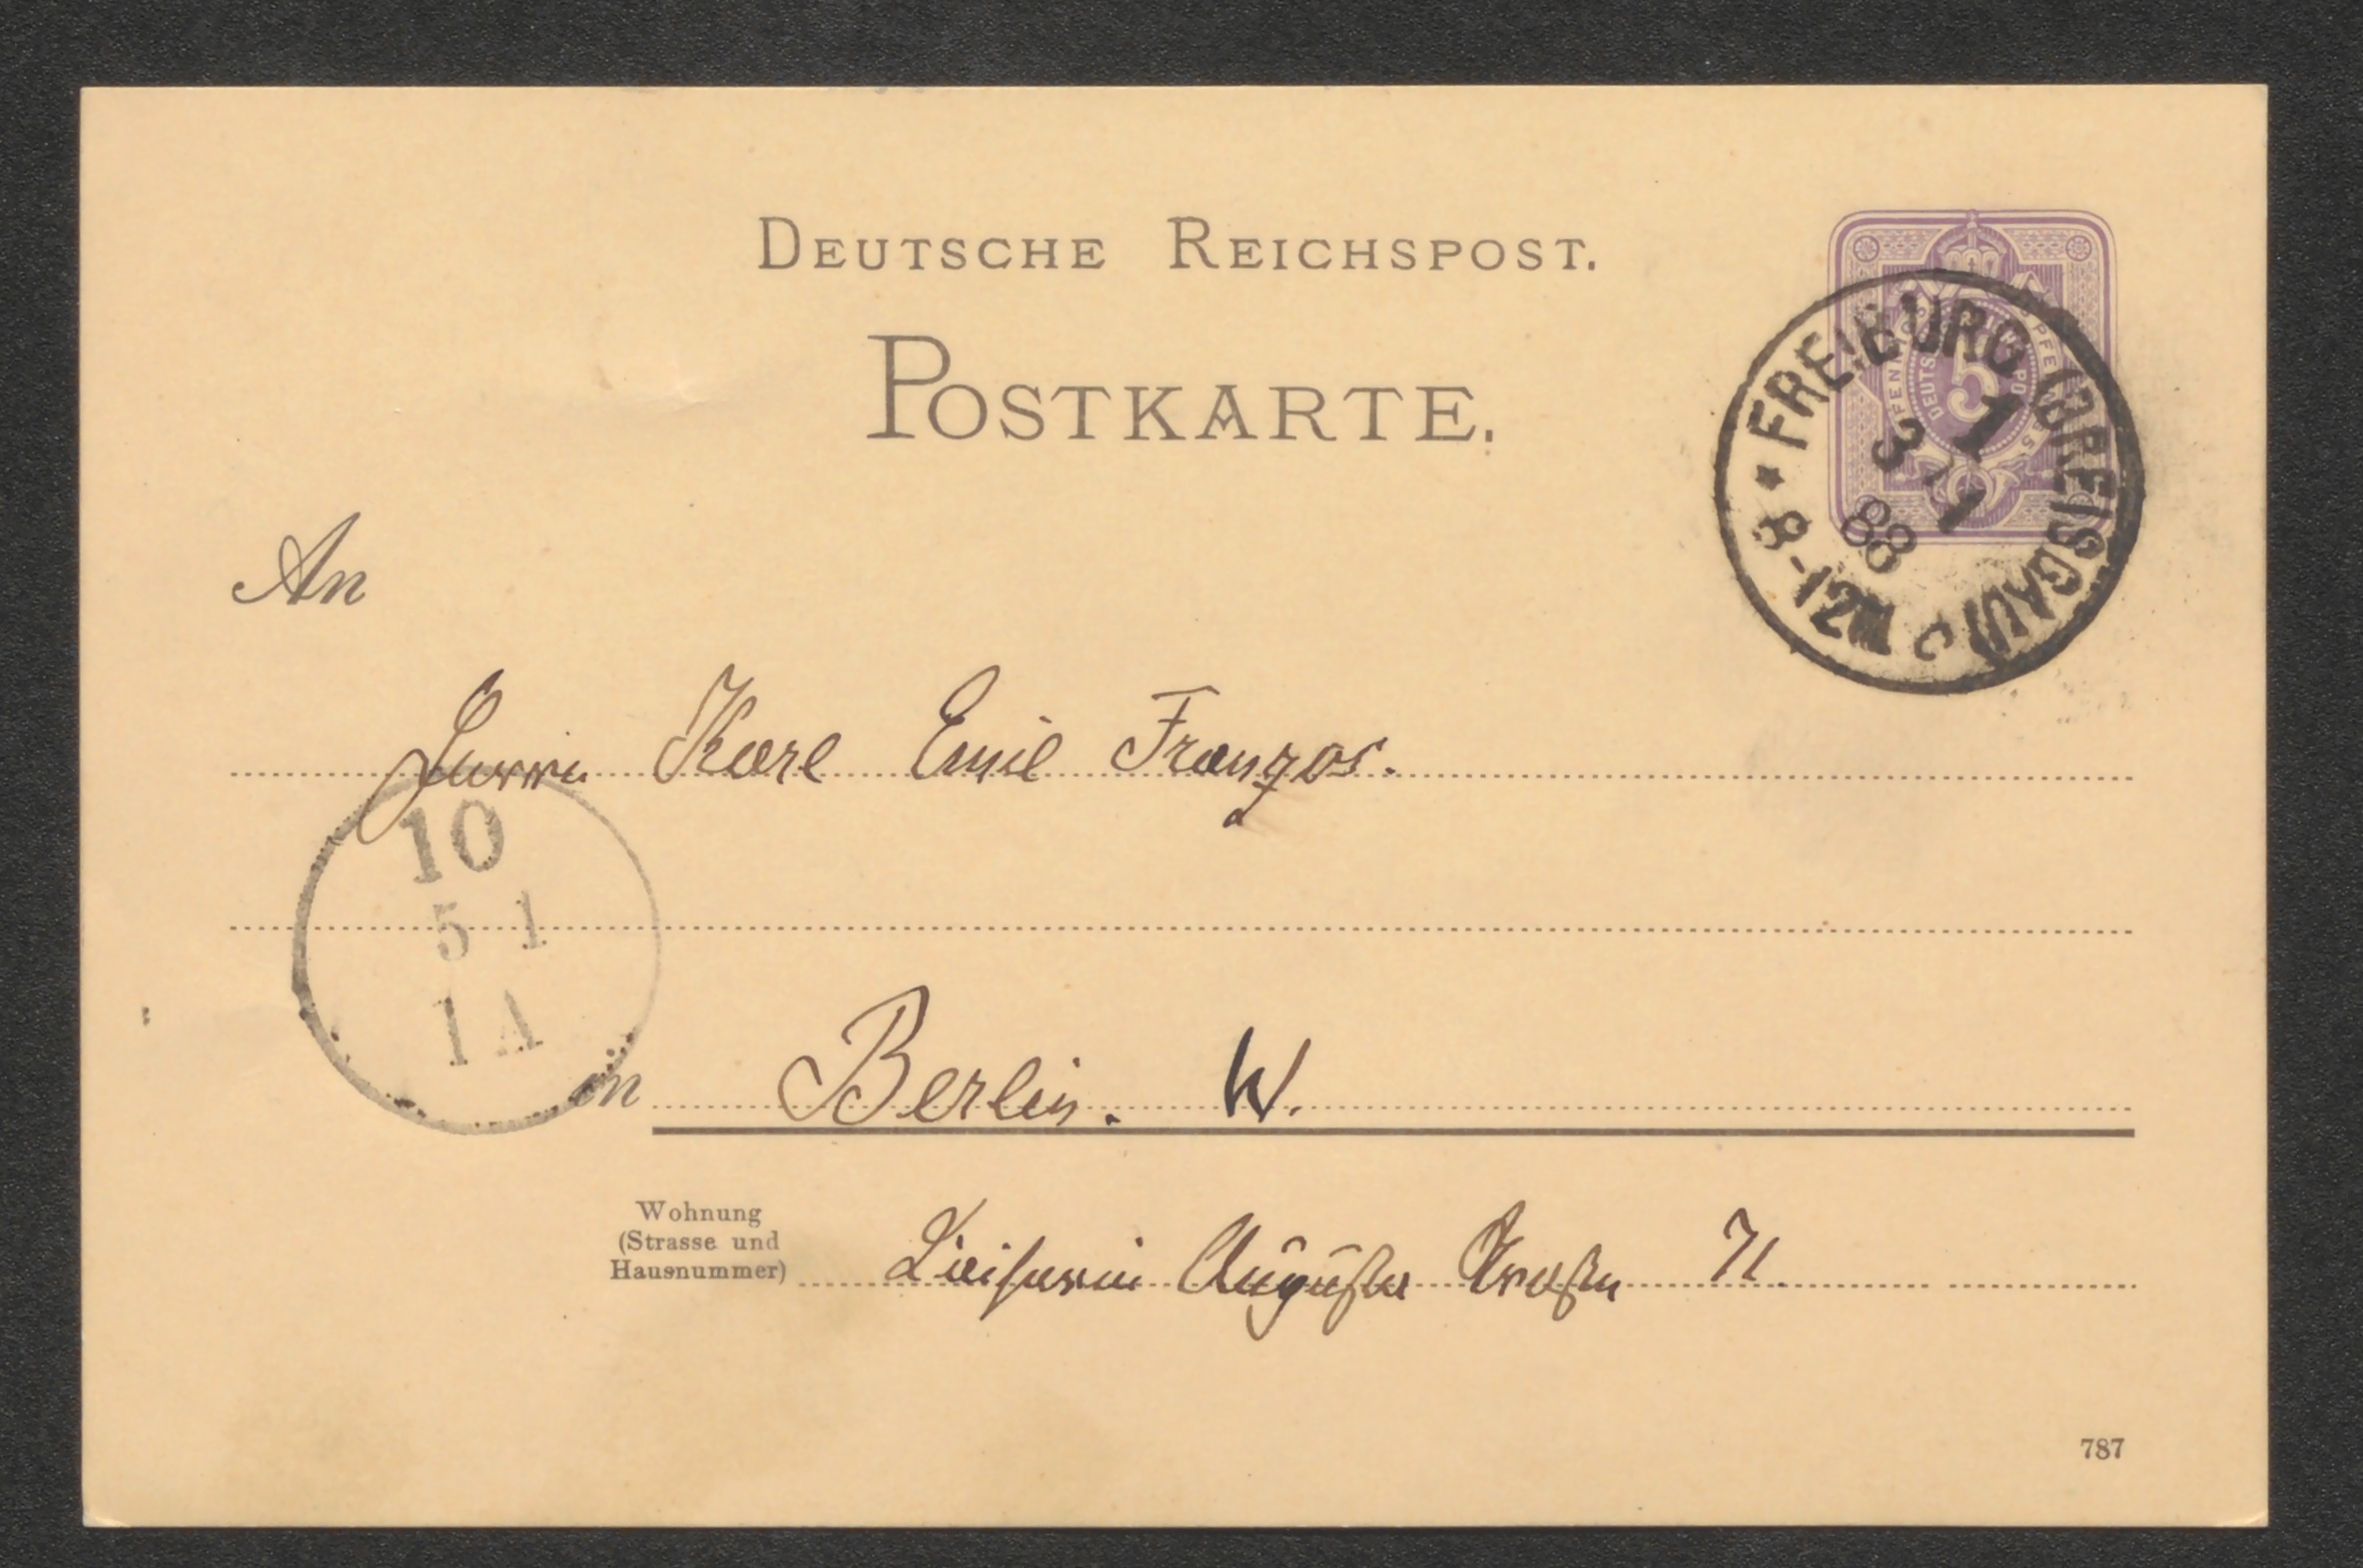 DEUTSCHE REICHSPOST.
POSTKARTE.
FREIBURG (BREISGAU)
1
3 1
88
* 8-12 V. c
5
An
Herrn Karl Emil Franzos.
10
5 1
1 A
in Berlin. W.
Wohnung
(Strasse und
Hausnummer)
Kaiserin Augusta Straße 71.
787